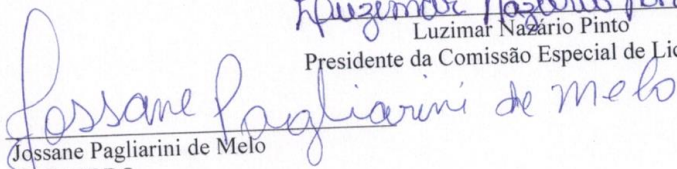 Luzimar Nazário Pinto
Luzimar Nazário Pinto
Presidente da Comissão Especial de Lic
Jossane Pagliarini de Melo
Jossane Pagliarini de Melo